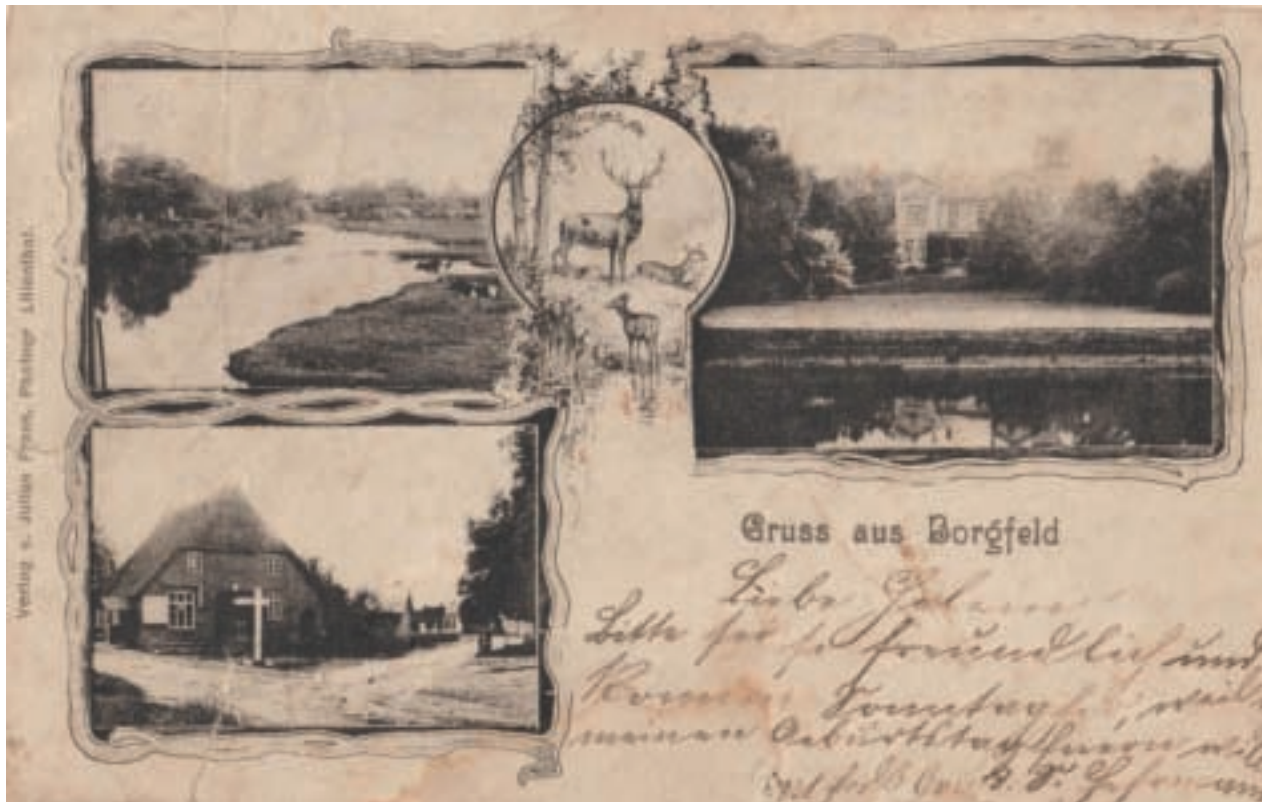 Verlag v. Julius Frank, Photogr. Lilienthal.
Gruss aus Borgfeld
Liebe
Bitte sei so freundlich und
Sonntag weil
meinen Geburtstag feiern will